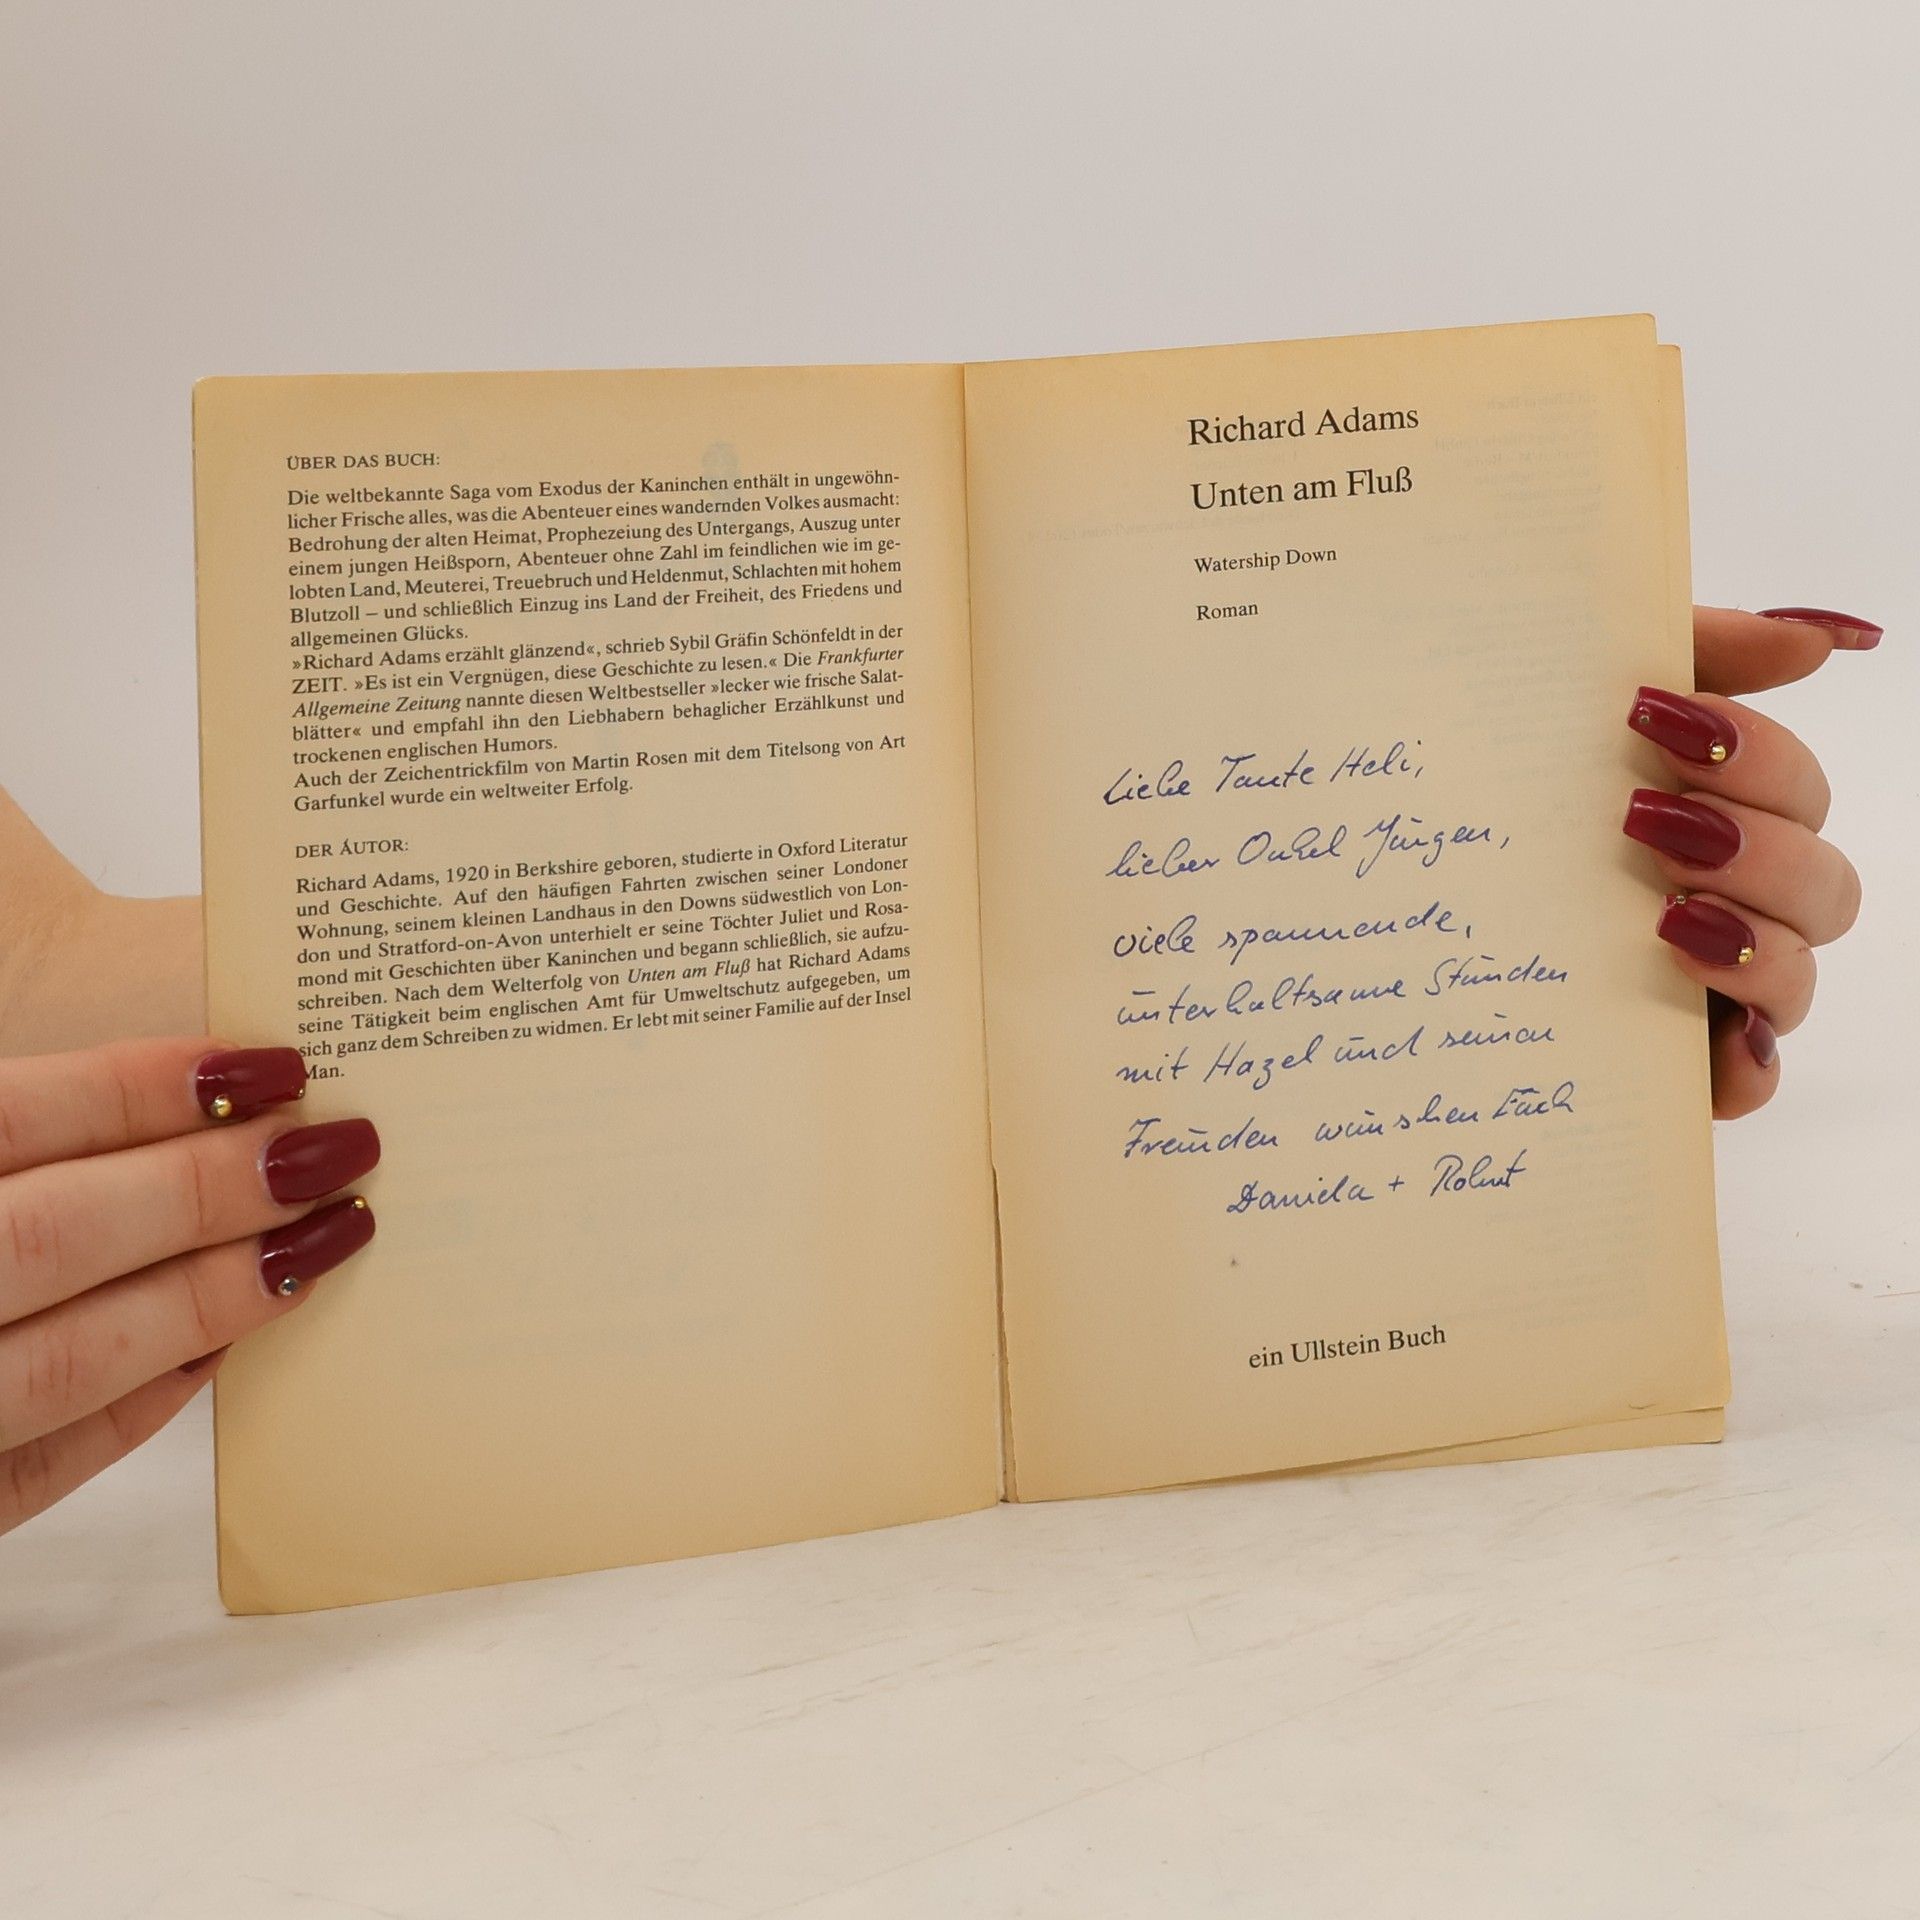 ÜBER DAS BUCH:
Die weltbekannte Saga vom Exodus der Kaninchen enthält in ungewöhn-
licher Frische alles, was die Abenteuer eines wandernden Volkes ausmacht:
Bedrohung der alten Heimat, Prophezeiung des Untergangs, Auszug unter
einem jungen Heißsporn, Abenteuer ohne Zahl im feindlichen wie im ge-
lobten Land, Meuterei, Treuebruch und Heldenmut, Schlachten mit hohem
Blutzoll – und schließlich Einzug ins Land der Freiheit, des Friedens und
allgemeinen Glücks.
»Richard Adams erzählt glänzend«, schrieb Sybil Gräfin Schönfeldt in der
ZEIT. »Es ist ein Vergnügen, diese Geschichte zu lesen.« Die Frankfurter
Allgemeine Zeitung nannte diesen Weltbestseller »lecker wie frische Salat-
blätter« und empfahl ihn den Liebhabern behaglicher Erzählkunst und
trockenen englischen Humors.
Auch der Zeichentrickfilm von Martin Rosen mit dem Titelsong von Art
Garfunkel wurde ein weltweiter Erfolg.
DER AUTOR:
Richard Adams, 1920 in Berkshire geboren, studierte in Oxford Literatur
und Geschichte. Auf den häufigen Fahrten zwischen seiner Londoner
Wohnung, seinem kleinen Landhaus in den Downs südwestlich von Lon-
don und Stratford-on-Avon unterhielt er seine Töchter Juliet und Rosa-
mond mit Geschichten über Kaninchen und begann schließlich, sie aufzu-
schreiben. Nach dem Welterfolg von Unten am Fluß hat Richard Adams
seine Tätigkeit beim englischen Amt für Umweltschutz aufgegeben, um
sich ganz dem Schreiben zu widmen. Er lebt mit seiner Familie auf der Insel
Man.
Richard Adams
Unten am Fluß
Watership Down
Roman
Liebe Tante Heli,
lieber Onkel Jürgen,
viele spannende,
unterhaltsame Stunden
mit Hazel und seinen
Freunden wünschen Euch
Daniela + Robert
ein Ullstein Buch